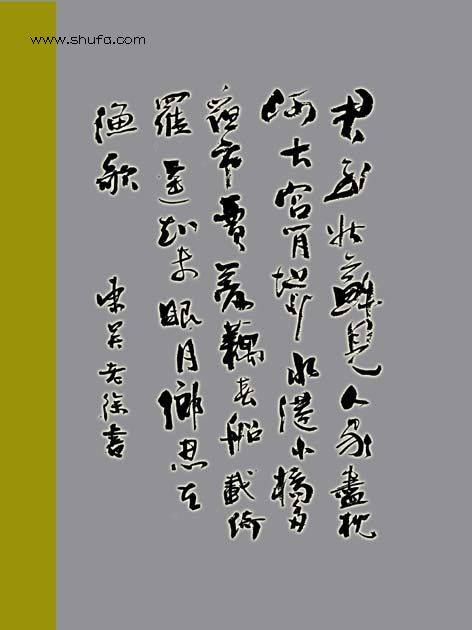 www.shufa.com
君到姑蘇見人家盡枕
河古宮閒地少水港小橋多
夜市賣菱藕春船載綺
羅遥知未眠月鄉思在
漁歌
東吴老徐書